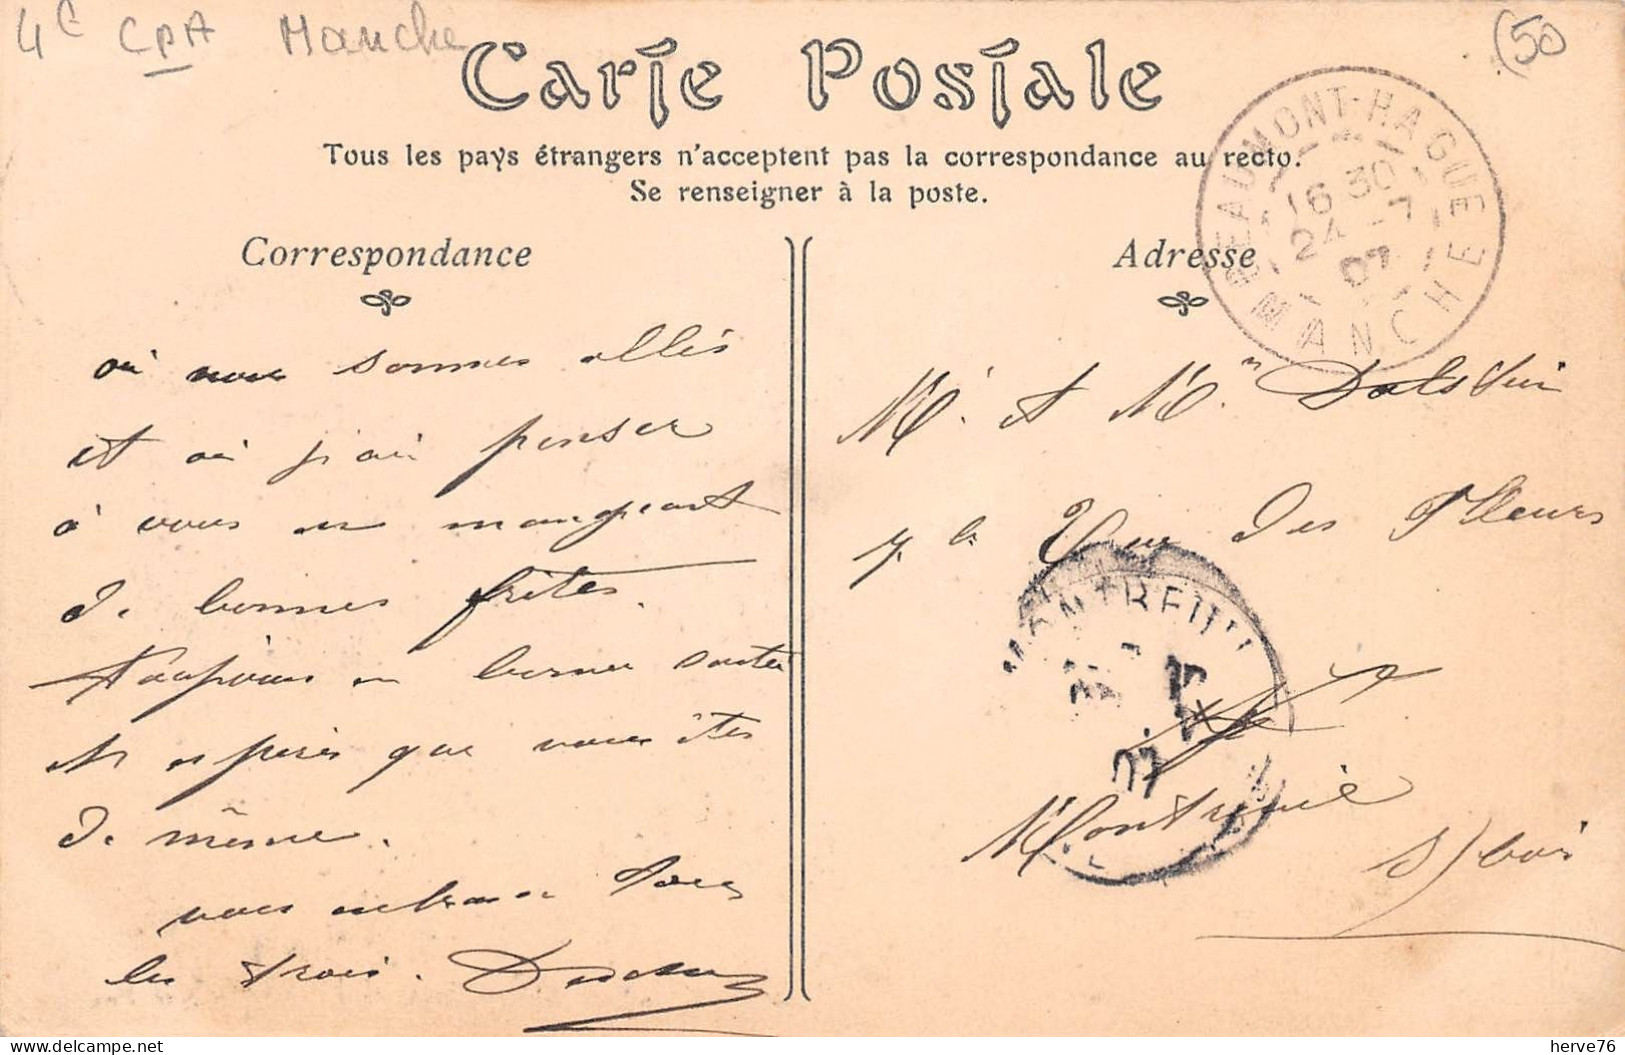 4€ CPA Manche
(50
Carte Postale
Tous les pays étrangers n'acceptent pas la correspondance au recto.
Se renseigner à la poste.
BEAUMONT-HAGUE
16 30
24 - 7
07
MANCHE
Correspondance
où nous sommes allés
et où j'ai penser
à vous en mangeant
de bonnes frites.
Toujours en bonne santé
et espère que vous êtes
de même.
vous embrasse tous
les trois.
Adresse
M. et Mme
7 bis Rue des Fleurs
Montreuil
s/ bois
MONTREUIL
07
delcampe.net
herve76